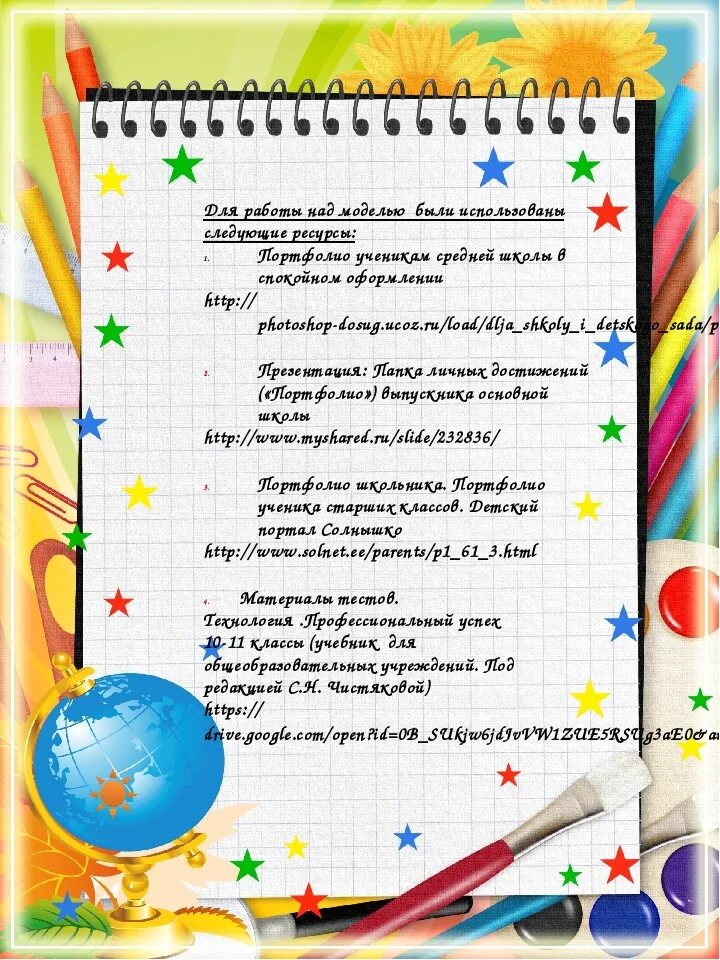 Для работы над моделью были использованы
следующие ресурсы:
1. Портфолио ученикам средней школы в
спокойном оформлении
http://
photoshop-dosug.ucoz.ru/load/dlja_shkoly_i_detskogo_sada/p
2. Презентация: Папка личных достижений
(«Портфолио») выпускника основной
школы
http://www.myshared.ru/slide/232836/
3. Портфолио школьника. Портфолио
ученика старших классов. Детский
портал Солнышко
http://www.solnet.ee/parents/p1_61_3.html
4. Материалы тестов.
Технология .Профессиональный успех
10-11 классы (учебник для
общеобразовательных учреждений. Под
редакцией С.Н. Чистяковой)
https://
drive.google.com/open?id=0B_SUkjw6jdJvVW1ZUE5RSUg3aE0&a